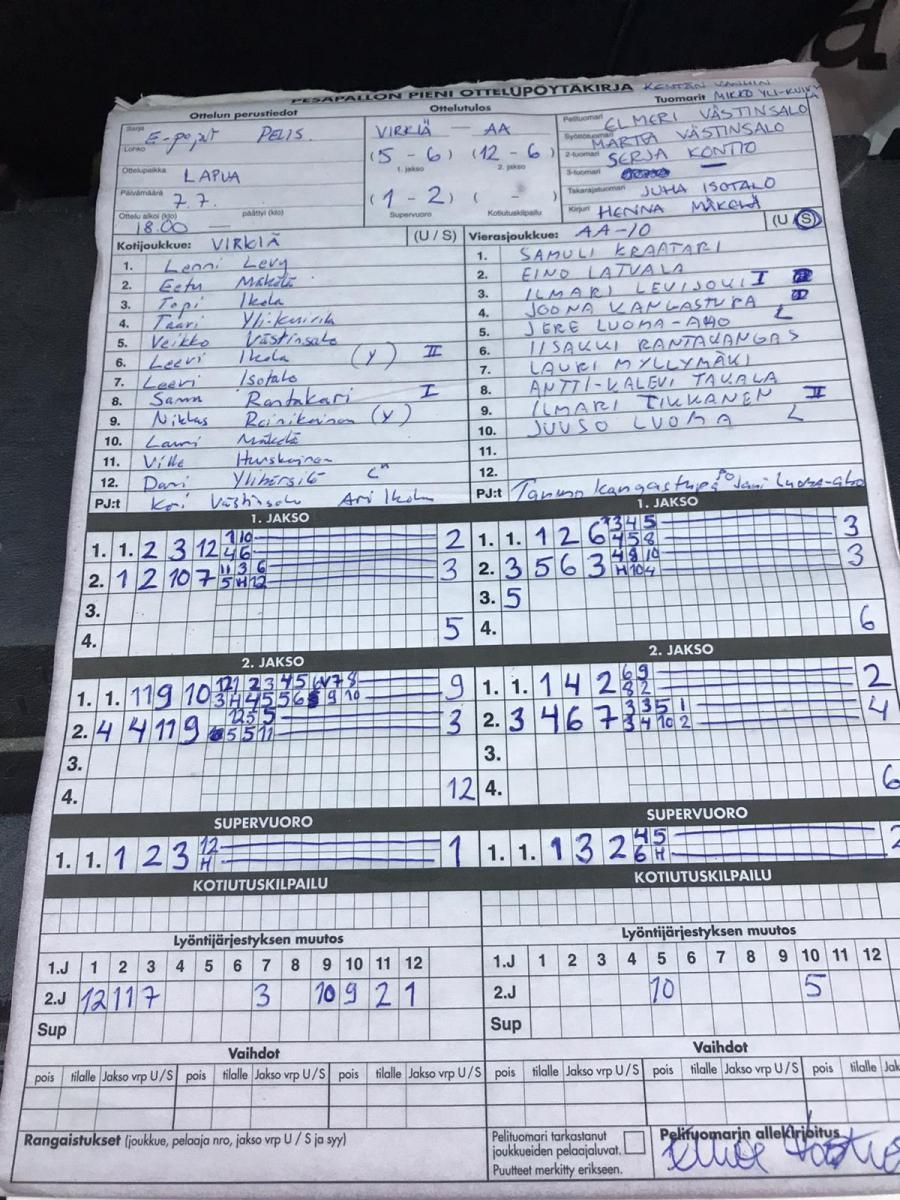 PESÄPALLON PIENI OTTELUPÖYTÄKIRJA KENTÄN VANHIN
Ottelun perustiedot Ottelutulos Tuomarit MIKKO YLI-KUIVILA
Sarja E-pojat PELIS. VIRKIÄ — AA Pelituomari ELMERI VÄSTINSALO
Lohko (5 - 6) (12 - 6) Syöttötuomari MARTTA VÄSTINSALO
1. jakso 2. jakso 2-tuomari SERJA KONTIO
Ottelupaikka LAPUA 3-tuomari
Päivämäärä 7.7. (1 - 2) ( - ) Takarajatuomari JUHA ISOTALO
Ottelu alkoi (klo) 18.00 päättyi (klo) Supervuoro Kotiutuskilpailu Kirjuri HENNA MÄKELÄ
Kotijoukkue: VIRKIÄ (U / S) Vierasjoukkue: AA-10 (U / S)
1. Lenni Levy 1. SAMULI KRAATARI
2. Eetu Mäkelä 2. EINO LATVALA
3. Topi Ikola 3. ILMARI LEVIJOKI I
4. Taavi Yli-kuivila 4. JOONA KANGASTUPA L
5. Veikko Västinsalo 5. JERE LUOMA-AHO
6. Leevi Ikola (Y) II 6. IISAKKI RANTAKANGAS
7. Leevi Isotalo 7. LAURI MYLLYMÄKI
8. Samu Rantakari I 8. ANTTI-KALEVI TAKALA
9. Niklas Rainikainen (Y) 9. ILMARI TIKKANEN II
10. Lauri Mäkelä 10. JUUSO LUOMA L
11. Ville Huuskonen 11.
12. Dani 12.
PJ:t Västinsalo Ari Ikola PJ:t Kangastupa Jani Luoma-aho
1. JAKSO 1. JAKSO
1. 1. 2 3 12 1 10 2 1. 1. 1 2 6 3 4 5 3
4 6 4 5 8
2. 1 2 10 7 11 3 6 3 2. 3 5 6 3 4 8 10 3
5 H 12 H 10 4
3. 3. 5
4. 5 4. 6
2. JAKSO 2. JAKSO
1. 1. 11 9 10 12 1 2 3 4 5 6 7 8 9 1. 1. 1 4 2 6 9 2
3 H 4 5 5 6 9 10 8 2
2. 4 4 11 9 12 5 5 3 2. 3 4 6 7 3 3 5 1 4
5 5 11 3 4 10 2
3. 3.
4. 12 4. 6
SUPERVUORO SUPERVUORO
1. 1. 1 2 3 12 1 1. 1. 1 3 2 4 5 2
H 6 H
KOTIUTUSKILPAILU KOTIUTUSKILPAILU
Lyöntijärjestyksen muutos Lyöntijärjestyksen muutos
1.J 1 2 3 4 5 6 7 8 9 10 11 12 1.J 1 2 3 4 5 6 7 8 9 10 11 12
2.J 12 11 7 3 10 9 2 1 2.J 10 5
Sup Sup
Vaihdot Vaihdot
pois tilalle Jakso vrp U / S pois tilalle Jakso vrp U / S pois tilalle Jakso vrp U / S pois tilalle Jakso vrp U / S pois tilalle Jakso vrp U / S pois tilalle Jak
Rangaistukset (joukkue, pelaaja nro, jakso vrp U / S ja syy) Pelituomari tarkastanut Pelituomarin allekirjoitus
joukkueiden pelaajaluvat.
Puutteet merkitty erikseen.